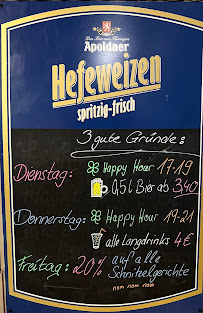 Das Bier aus Thüringen
Apoldaer
Hefeweizen
spritzig-frisch
3 gute Gründe:
Dienstag: Happy Hour 17-19
0,5l Bier ab 3,40
Donnerstag: Happy Hour 19-21
alle Longdrinks 4€
Freitag: 20% auf alle
Schnitzelgerichte
nom nom nom